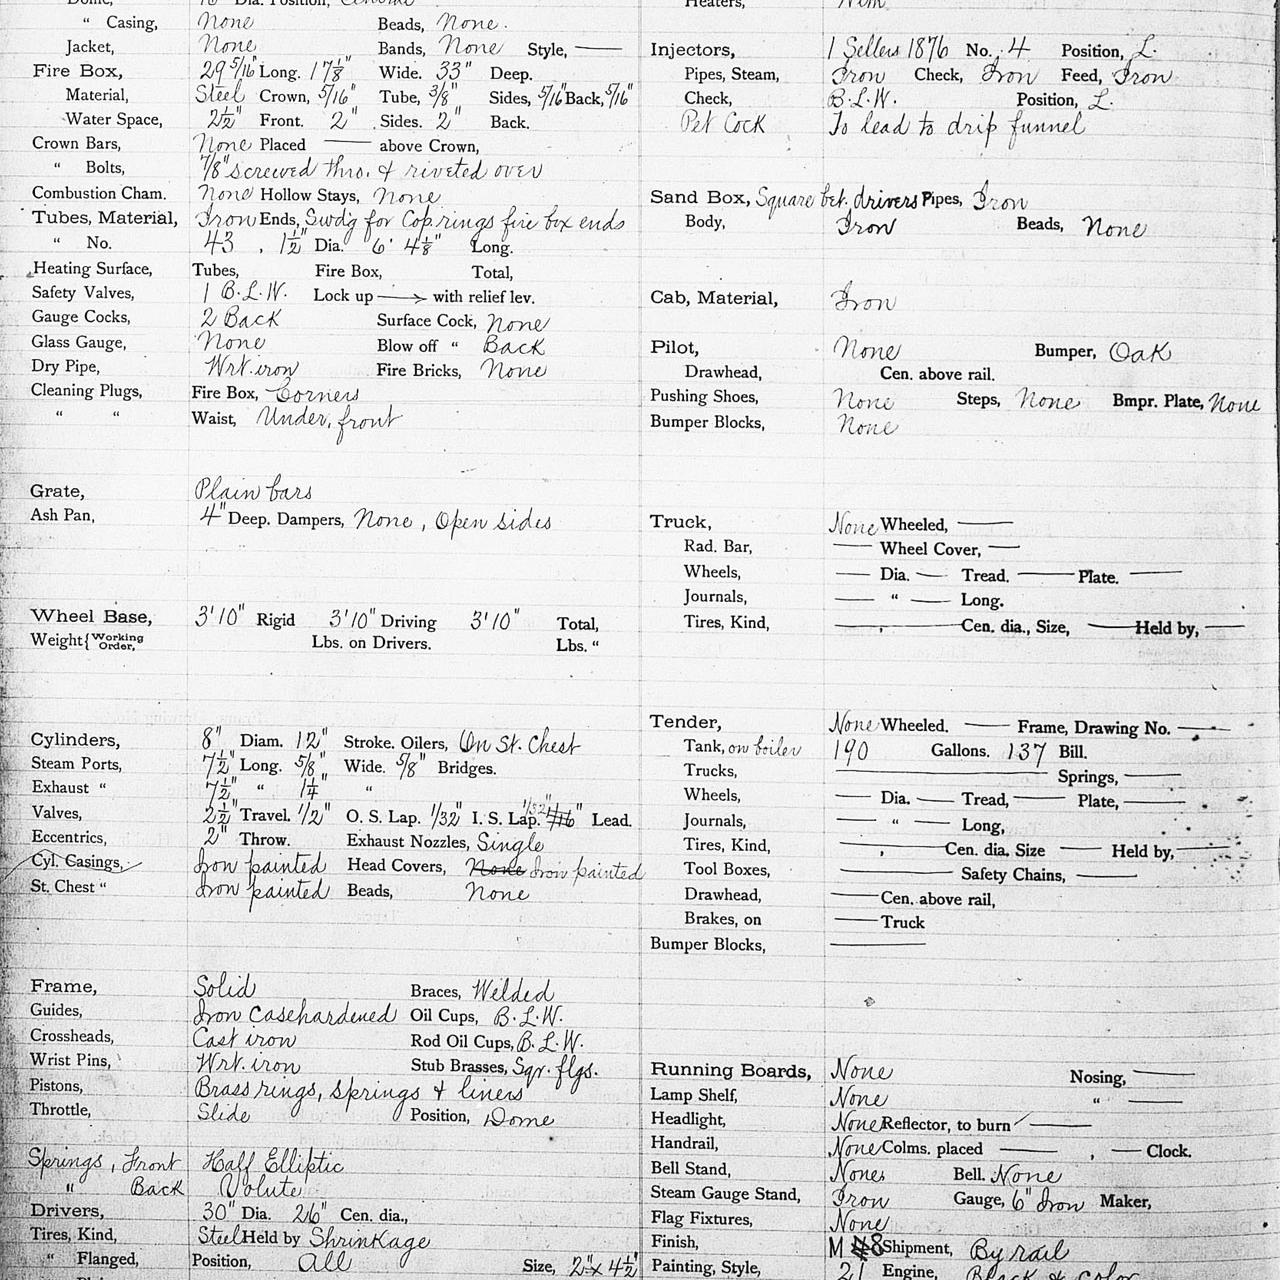 Dome, Dia. Position, Central
" Casing, None Beads, None.
Jacket, None Bands, None Style, —
Fire Box, 29 5/16" Long. 17 1/8" Wide. 33" Deep.
Material, Steel Crown, 5/16" Tube, 3/8" Sides, 5/16" Back, 5/16"
Water Space, 2 1/2" Front. 2" Sides. 2" Back.
Crown Bars, None Placed — above Crown,
" Bolts, 7/8" screwed thro. & riveted over
Combustion Cham. None Hollow Stays, None
Tubes, Material, Iron Ends, Swd'g for Cop. rings fire box ends
" No. 43, 1 1/2" Dia. 6' 4 1/8" Long.
Heating Surface, Tubes, Fire Box, Total,
Safety Valves, 1 B.L.W. Lock up → with relief lev.
Gauge Cocks, 2 Back Surface Cock, None
Glass Gauge, None Blow off " Back
Dry Pipe, Wrt. iron Fire Bricks, None
Cleaning Plugs, Fire Box, Corners
" " Waist, Under, front
Grate, Plain bars
Ash Pan, 4" Deep. Dampers, None, Open sides
Wheel Base, 3' 10" Rigid 3' 10" Driving 3' 10" Total,
Weight { Working Order," Lbs. on Drivers. Lbs. "
Cylinders, 8" Diam. 12" Stroke. Oilers, On St. Chest
Steam Ports, 7 1/2" Long. 5/8" Wide. 5/8" Bridges.
Exhaust " 7 1/2" " 1 1/4" "
Valves, 2 1/2" Travel. 1/2" O. S. Lap. 1/32" I. S. Lap. 1/32" Lead.
Eccentrics, 2" Throw. Exhaust Nozzles, Single
Cyl. Casings, Iron painted Head Covers, None Iron painted
St. Chest " Iron painted Beads, None
Frame, Solid Braces, Welded
Guides, Iron Casehardened Oil Cups, B.L.W.
Crossheads, Cast iron Rod Oil Cups, B.L.W.
Wrist Pins, Wrt. iron Stub Brasses, Sqr. flgs.
Pistons, Brass rings, springs & liners
Throttle, Slide Position, Dome
Springs, Front Half Elliptic
" Back Volute
Drivers, 30" Dia. 26" Cen. dia.,
Tires, Kind, Steel Held by Shrinkage
" Flanged, Position, All Size, 2" x 4 1/2"
Heaters,
Injectors, 1 Sellers 1876 No. 4 Position, L.
Pipes, Steam, Iron Check, Iron Feed, Iron
Check, B.L.W. Position, L.
Pet Cock To lead to drip funnel
Sand Box, Square bet. drivers Pipes, Iron
Body, Iron Beads, None
Cab, Material, Iron
Pilot, None Bumper, Oak
Drawhead, Cen. above rail.
Pushing Shoes, None Steps, None Bmpr. Plate, None
Bumper Blocks, None
Truck, None Wheeled, —
Rad. Bar, — Wheel Cover, —
Wheels, — Dia. — Tread. — Plate. —
Journals, — " — Long.
Tires, Kind, —, — Cen. dia., Size, — Held by, —
Tender, None Wheeled. — Frame, Drawing No. —
Tank, on boiler 190 Gallons. 137 Bill.
Trucks, — Springs, —
Wheels, — Dia. — Tread, — Plate, —
Journals, — " — Long,
Tires, Kind, —, — Cen. dia. Size — Held by, —
Tool Boxes, — Safety Chains, —
Drawhead, — Cen. above rail,
Brakes, on — Truck
Bumper Blocks, —
Running Boards, None Nosing, —
Lamp Shelf, None " —
Headlight, None Reflector, to burn —
Handrail, None Colms. placed —, — Clock.
Bell Stand, None Bell. None
Steam Gauge Stand, Iron Gauge, 6" Iron Maker,
Flag Fixtures, None
Finish, M 8 Shipment, By rail
Painting, Style, 21 Engine, Black & color